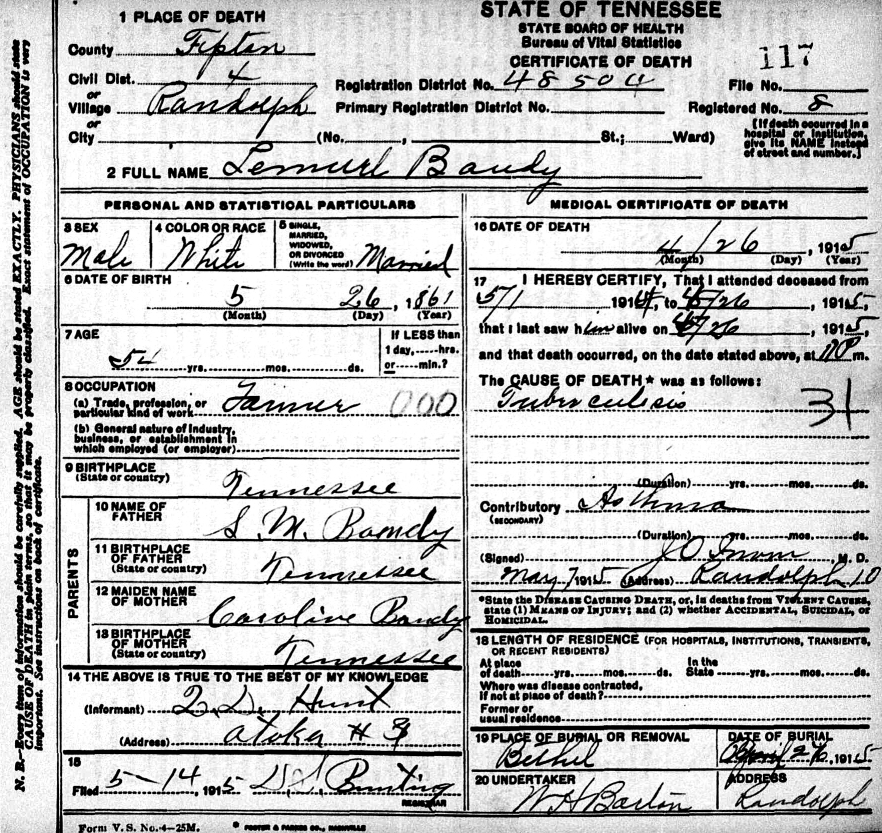 STATE OF TENNESSEE
STATE BOARD OF HEALTH
Bureau of Vital Statistics
CERTIFICATE OF DEATH
117
1 PLACE OF DEATH
County Tipton
Civil Dist. 4
or
Village Randolph
or
City (No. , St.; Ward)
Registration District No. 48504 File No.
Primary Registration District No. Registered No. 8
[If death occurred in a
hospital or institution,
give its NAME instead
of street and number.]
2 FULL NAME Lemurl Bandy
PERSONAL AND STATISTICAL PARTICULARS
3 SEX
Male
4 COLOR OR RACE
White
5 SINGLE,
MARRIED,
WIDOWED,
OR DIVORCED
(Write the word) Married
6 DATE OF BIRTH
5 26, 1861
(Month) (Day) (Year)
7 AGE
yrs. mos. ds.
If LESS than
1 day, hrs.
or min.?
8 OCCUPATION
(a) Trade, profession, or
particular kind of work Farmer 000
(b) General nature of industry,
business, or establishment in
which employed (or employer)
9 BIRTHPLACE
(State or country) Tennessee
PARENTS
10 NAME OF
FATHER S. M. Bandy
11 BIRTHPLACE
OF FATHER
(State or country) Tennessee
12 MAIDEN NAME
OF MOTHER Caroline Bandy
13 BIRTHPLACE
OF MOTHER
(State or country) Tennessee
14 THE ABOVE IS TRUE TO THE BEST OF MY KNOWLEDGE
(Informant) Hunt
(Address) Atoka
15
Filed 5-14, 1915 Bunting
REGISTRAR
MEDICAL CERTIFICATE OF DEATH
16 DATE OF DEATH
4/26, 1915
(Month) (Day) (Year)
17 I HEREBY CERTIFY, That I attended deceased from
5/1 1914, to 4/26, 1915,
that I last saw him alive on 4/26, 1915,
and that death occurred, on the date stated above, at m.
The CAUSE OF DEATH* was as follows:
Tuberculosis 31
(Duration) yrs. mos. ds.
Contributory Asthma
(SECONDARY)
(Duration) yrs. mos. ds.
(Signed) J O , M. D.
May 7 1915 (Address) Randolph
*State the DISEASE CAUSING DEATH, or, in deaths from VIOLENT CAUSES,
state (1) MEANS OF INJURY; and (2) whether ACCIDENTAL, SUICIDAL, or
HOMICIDAL.
18 LENGTH OF RESIDENCE (FOR HOSPITALS, INSTITUTIONS, TRANSIENTS,
OR RECENT RESIDENTS)
At place
of death yrs. mos. ds.
In the
State yrs. mos. ds.
Where was disease contracted,
if not at place of death?
Former or
usual residence
19 PLACE OF BURIAL OR REMOVAL
Bethel
DATE OF BURIAL
April 26, 1915
20 UNDERTAKER
W H Barton
ADDRESS
Randolph
Form V. S. No. 4-25M.
* FOSTER & PARKES CO., NASHVILLE
N. B.—Every item of information should be carefully supplied. AGE should be stated EXACTLY. PHYSICIANS should state
CAUSE OF DEATH in plain terms, so that it may be properly classified. Exact statement of OCCUPATION is very
important. See instructions on back of certificate.